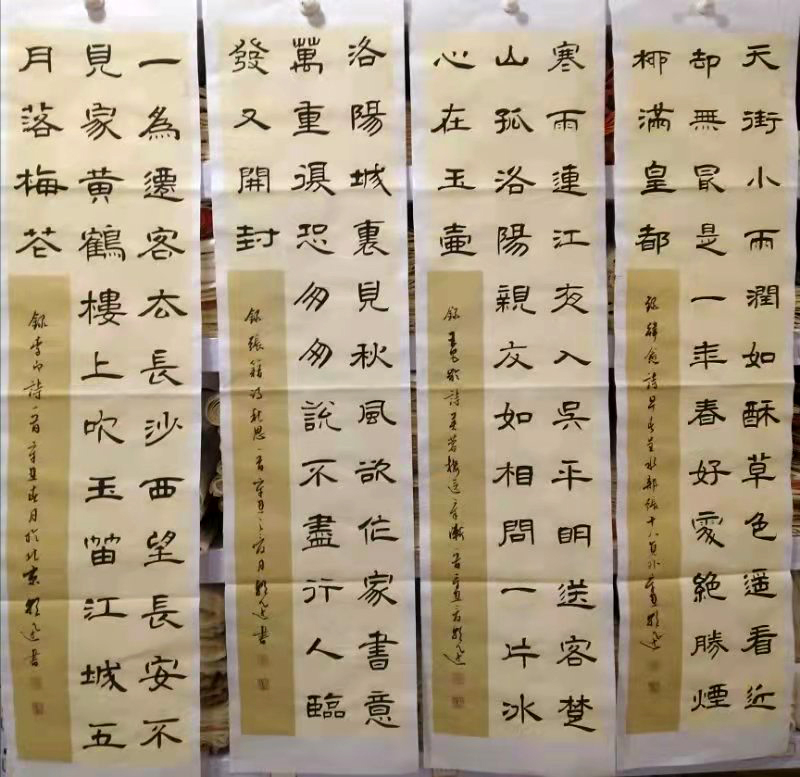 天街小雨潤如酥草色遥看近
却無冣是一年春好處絶勝煙
栁滿皇都
録韓愈詩早春呈水部張十八員外辛丑
寒雨連江夜入吳平明送客楚
山孤洛陽親友如相問一片冰
心在玉壺
録王昌齡詩芙蓉樓送辛漸一首辛丑
洛陽城裏見秋風欲作家書意
萬重復恐匆匆說不盡行人臨
發又開封
録張籍詩秋思一首辛丑月書
一為遷客去長沙西望長安不
見家黃鶴樓上吹玉笛江城五
月落梅花
録李白詩一首辛丑春月於北京書